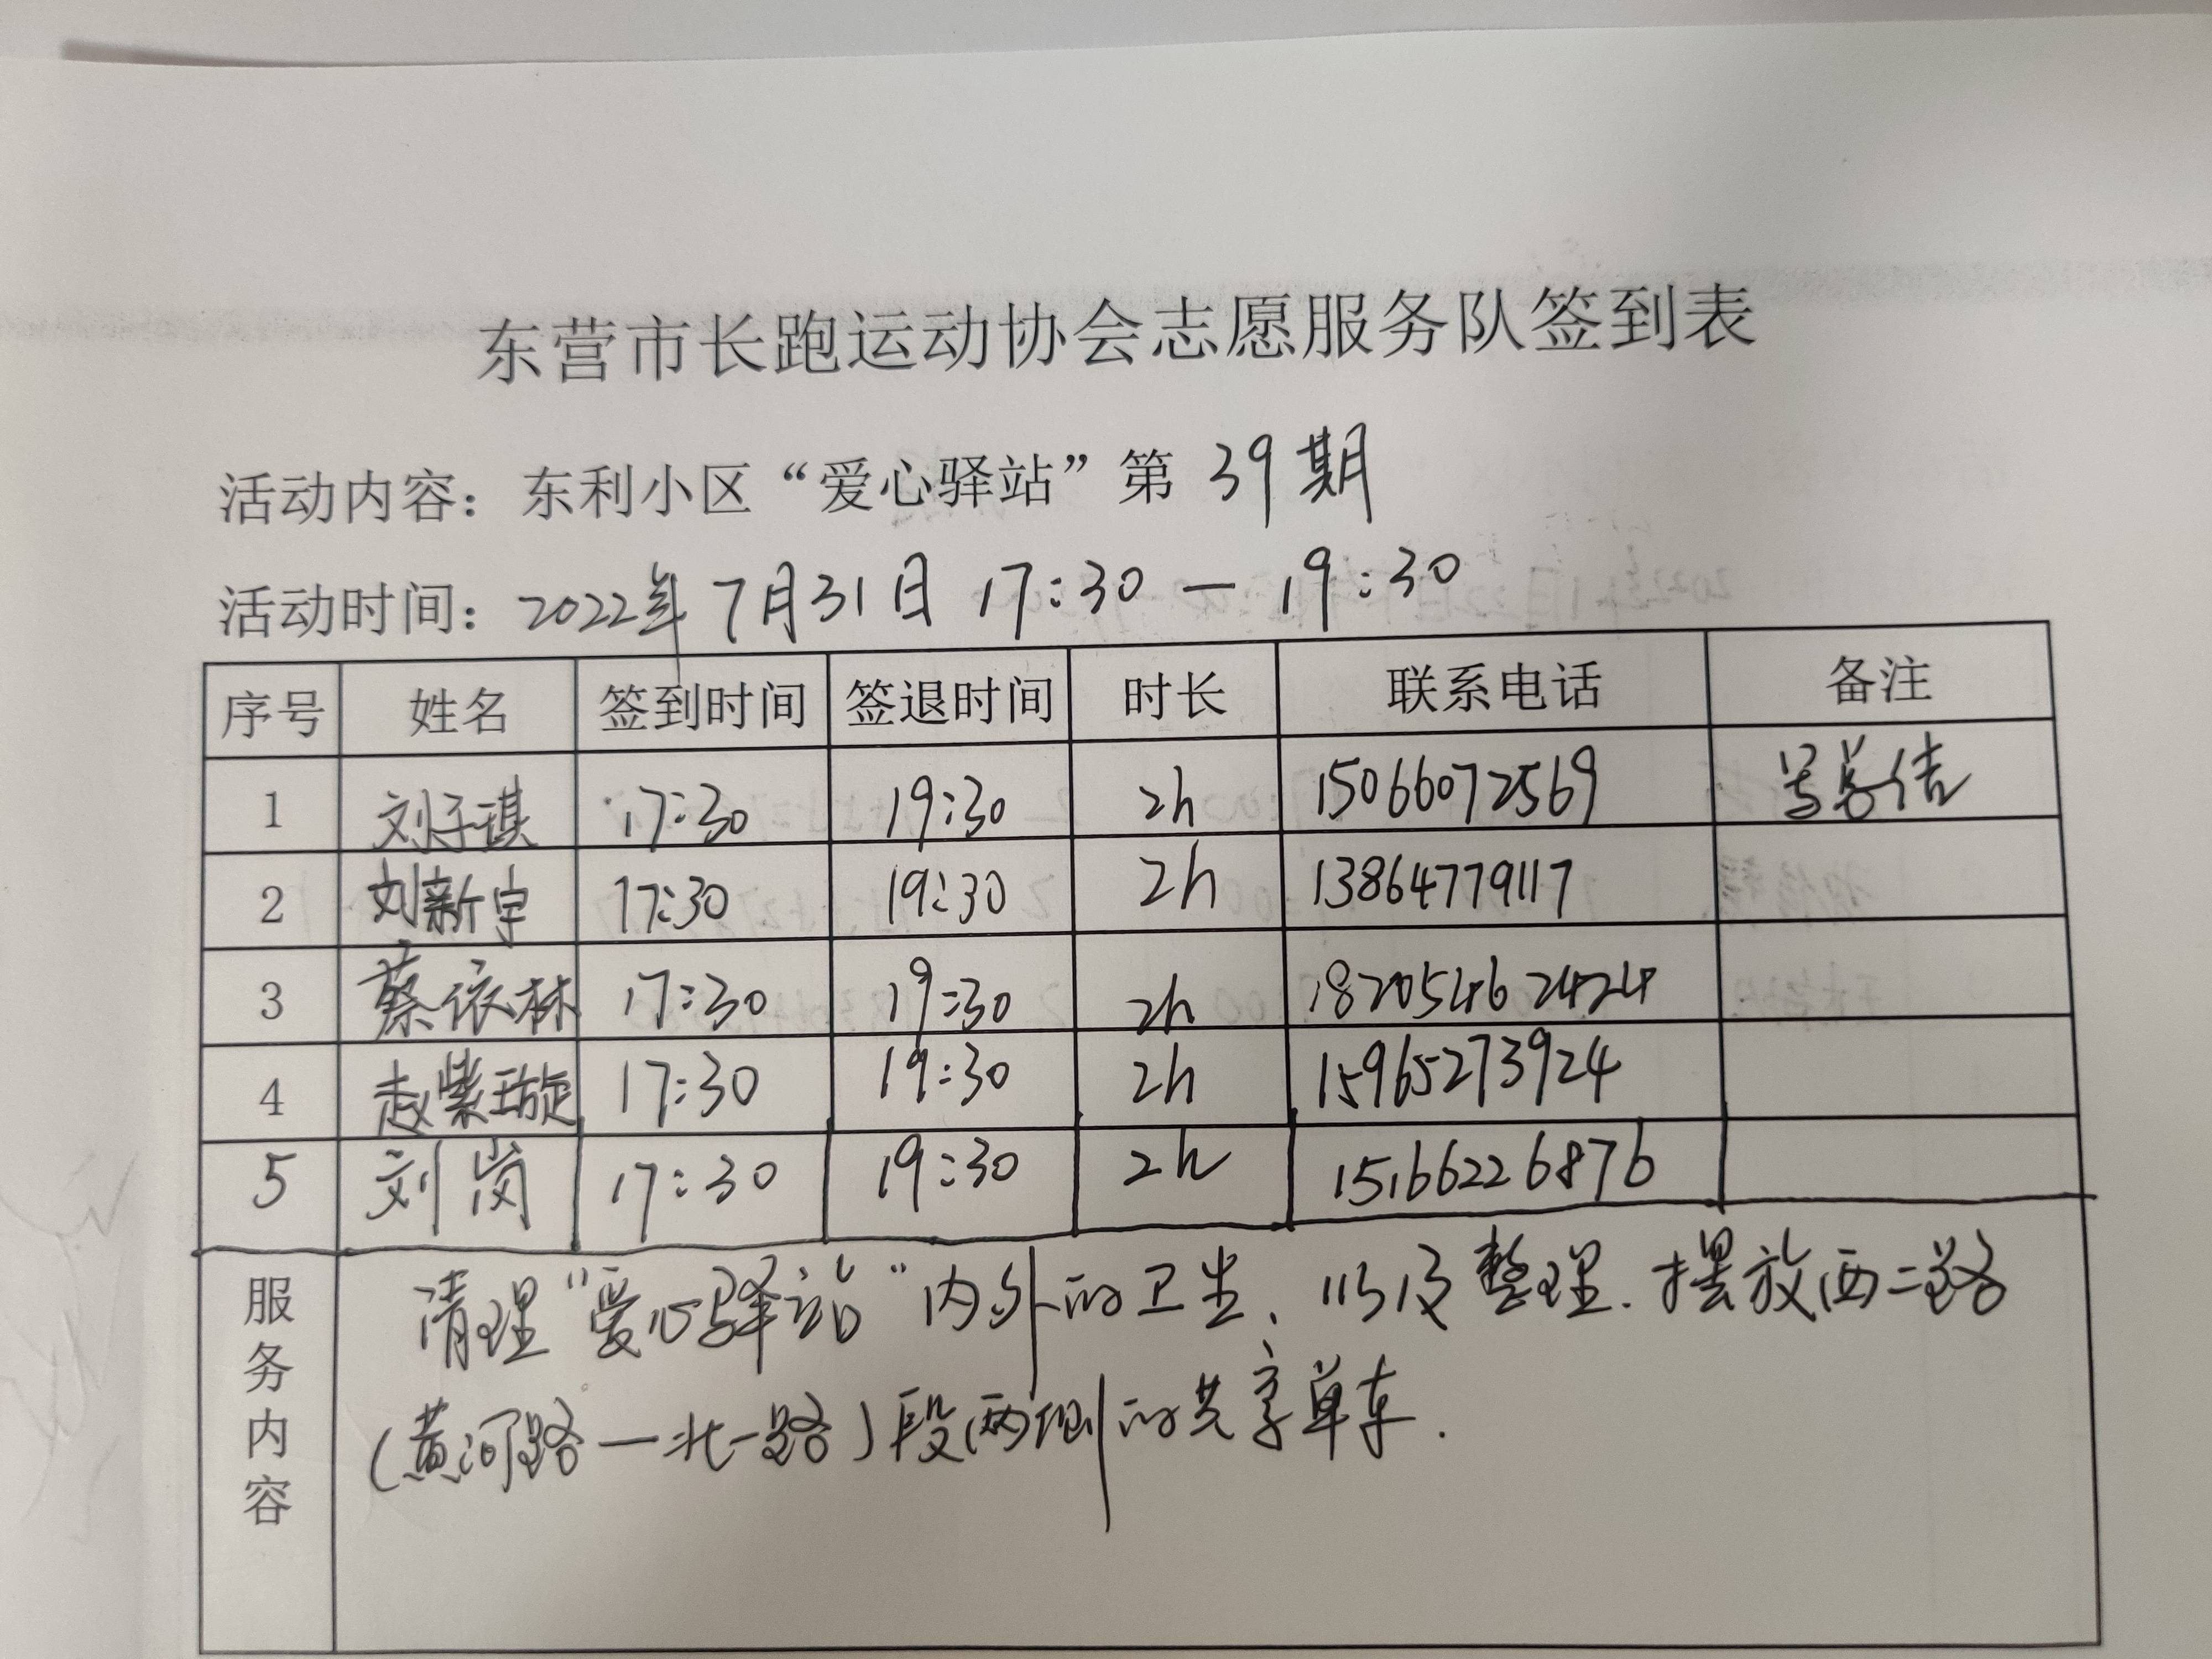 东营市长跑运动协会志愿服务队签到表
活动内容：东利小区“爱心驿站”第 39期
活动时间：2022年7月31日 17:30 — 19:30
序号 姓名 签到时间 签退时间 时长 联系电话 备注
1 刘子琪 17:30 19:30 2h 15066072569 写总结
2 刘新宇 17:30 19:30 2h 13864779117
3 蔡依林 17:30 19:30 2h 18205462424
4 赵紫璇 17:30 19:30 2h 15965273924
5 刘岗 17:30 19:30 2h 15166226876
服务内容
清理“爱心驿站”内外的卫生、以及整理.摆放西二路
(黄河路一北一路)段两侧的共享单车.